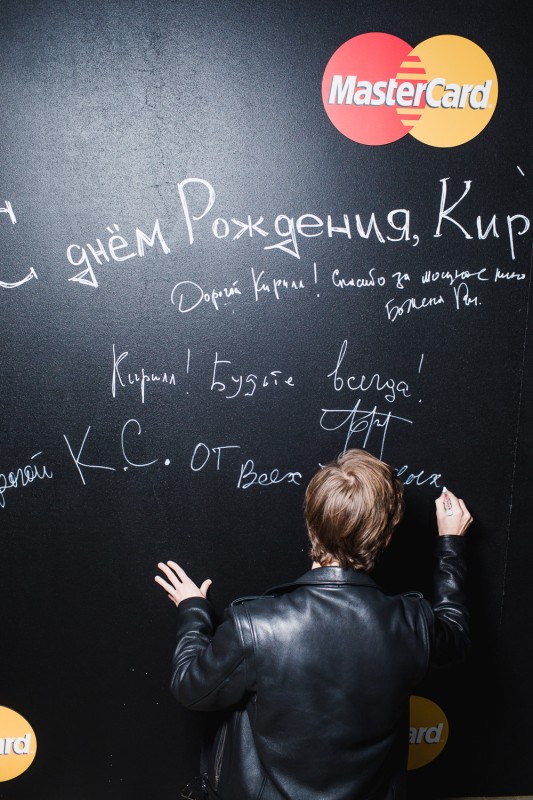 MasterCard
С днём Рождения, Кир
Дорогой Кирилл! Спасибо за мощное кино
Божена Ры.
Кирилл! Будьте всегда!
рогой К.С. от Всех
ard
ard